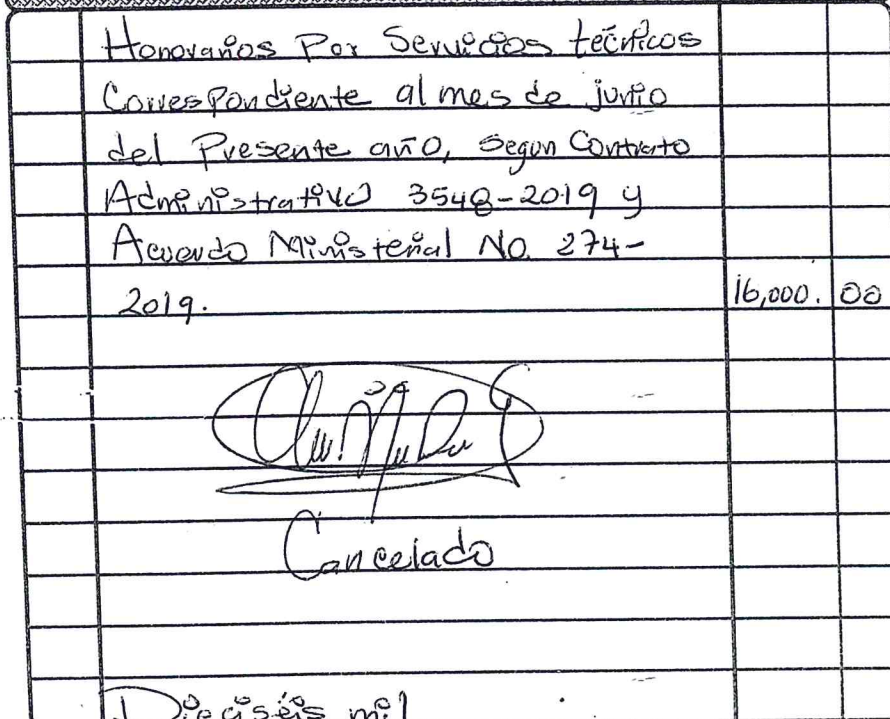 Honorarios Por Servicios técnicos
Correspondiente al mes de junio
del Presente año, Segun Contrato
Administrativo 3548-2019 y
Acuerdo Ministerial No. 274-
2019. 16,000. 00
Cancelado
Dieciséis mil